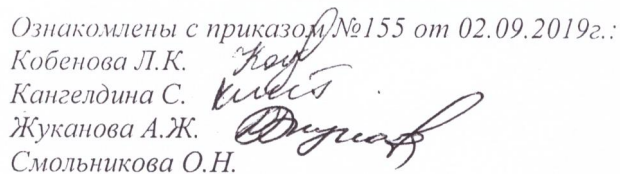 Ознакомлены с приказом №155 от 02.09.2019г.:
Кобенова Л.К.
Кангелдина С.
Жуканова А.Ж.
Смольникова О.Н.